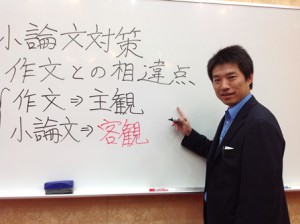 小論文対策
作文との相違点
作文⇒主観
小論文⇒客観